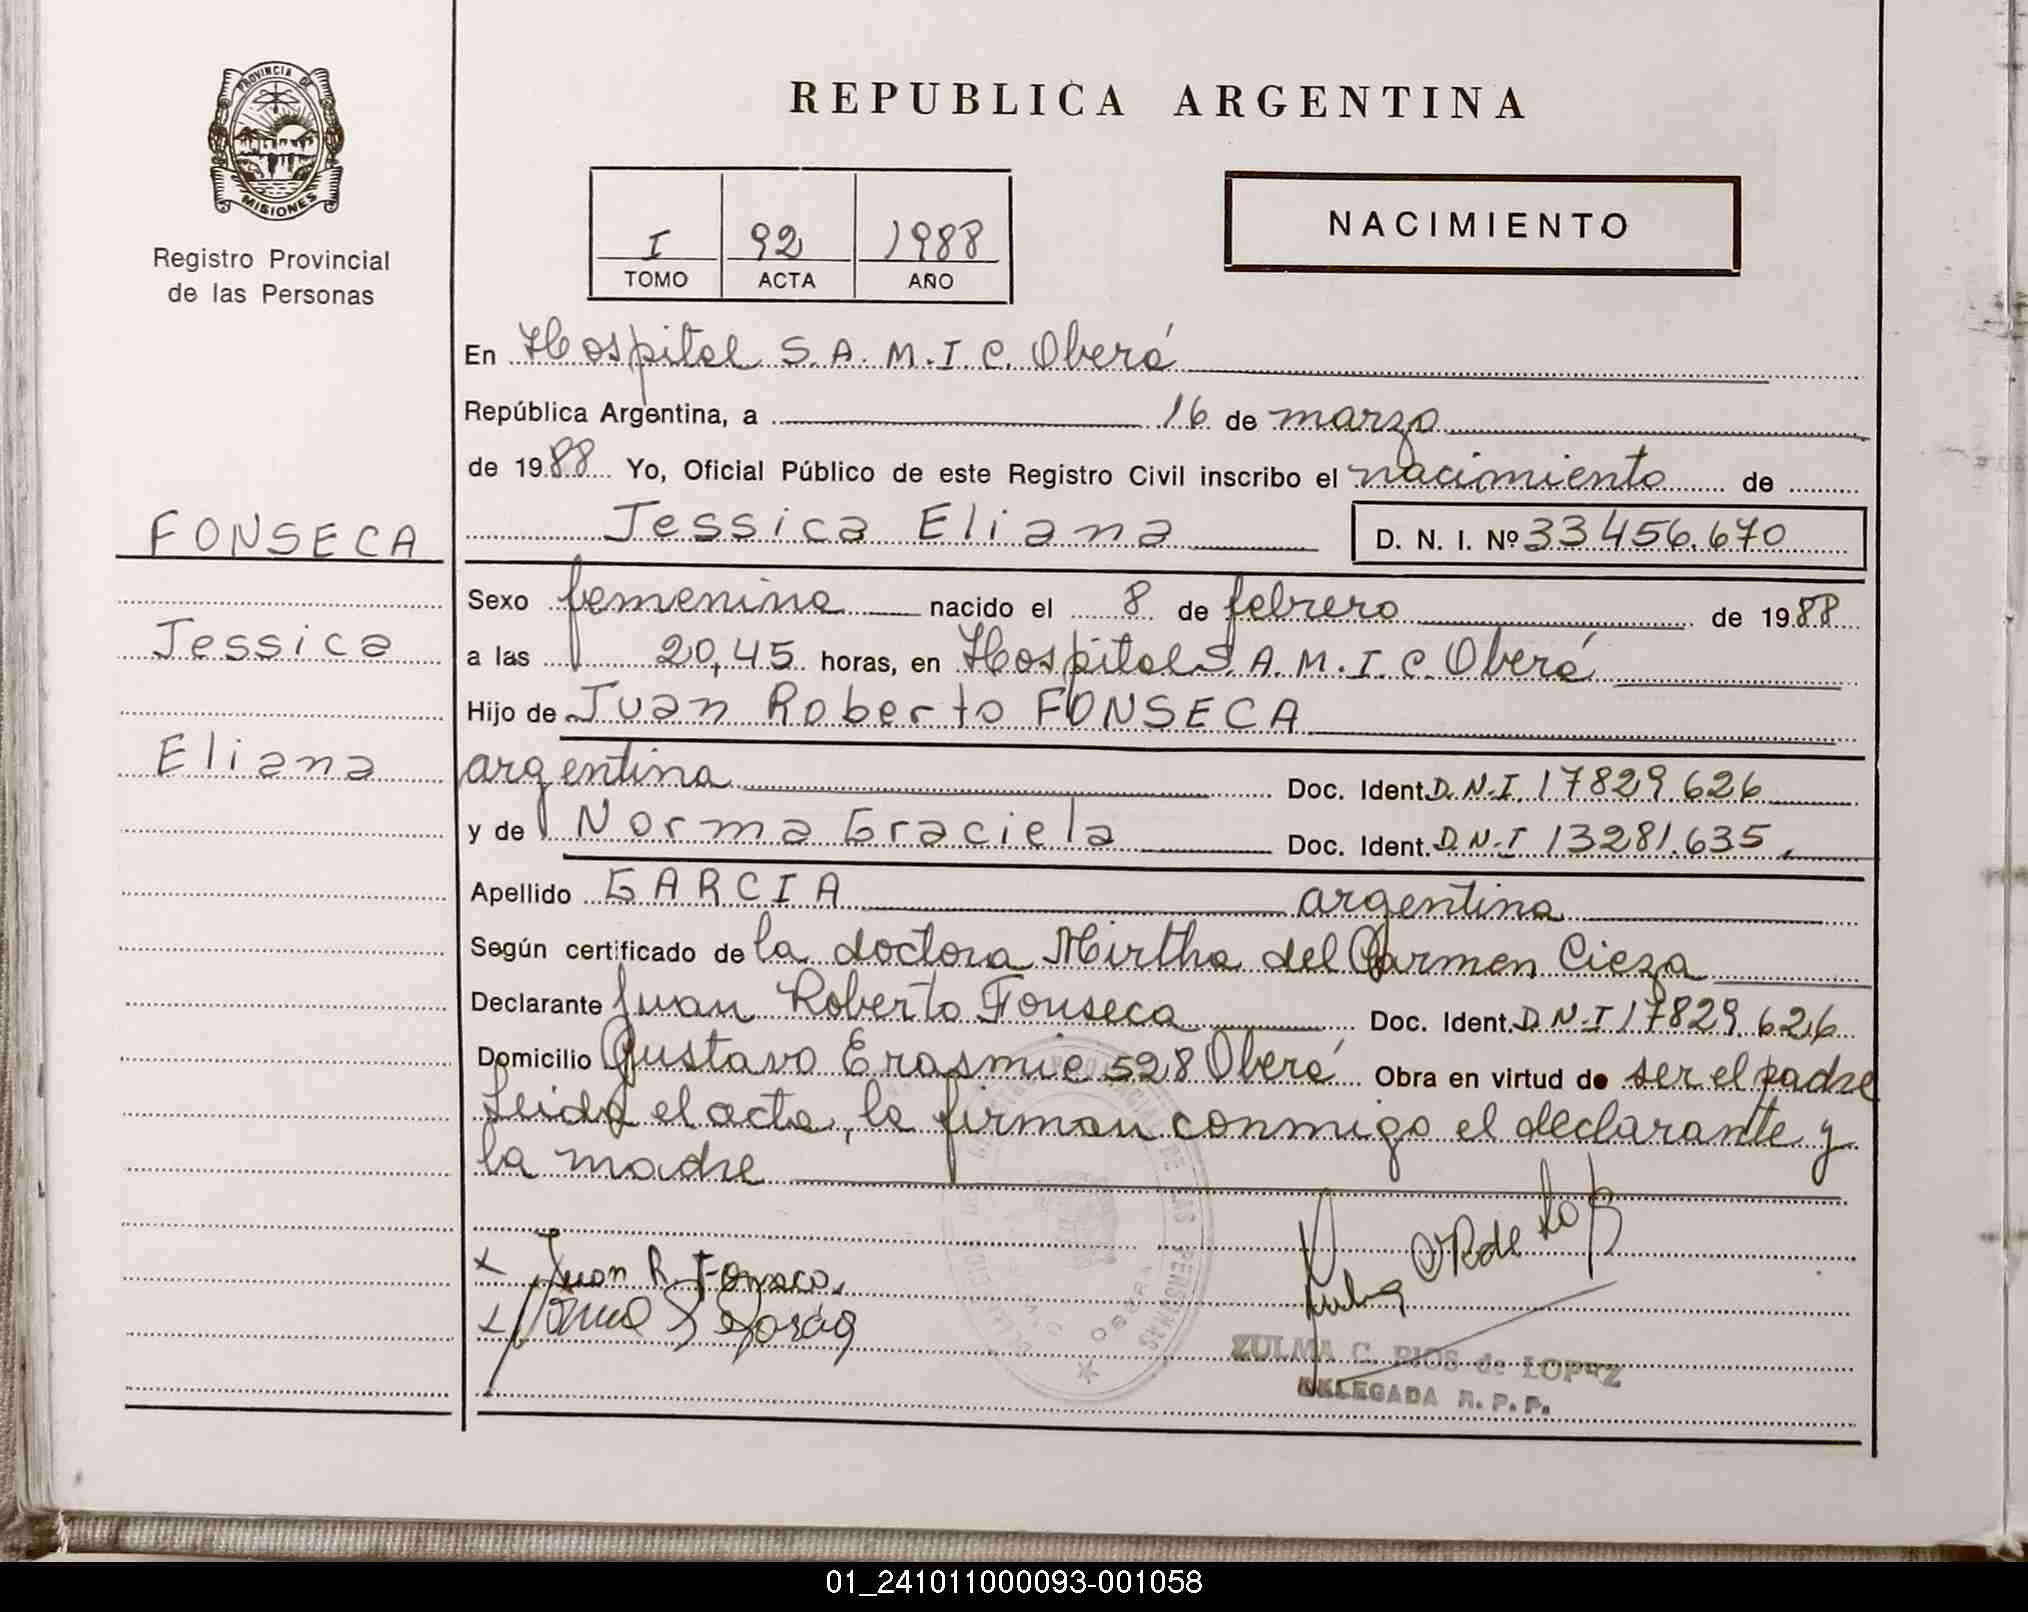 PROVINCIA DE
MISIONES
Registro Provincial
de las Personas
REPUBLICA ARGENTINA
I 92 1988
TOMO ACTA AÑO
NACIMIENTO
En Hospital S.A.M.I.C. Oberá
República Argentina, a 16 de marzo
de 1988 Yo, Oficial Público de este Registro Civil inscribo el nacimiento de
FONSECA
Jessica Eliana D. N. I. Nº 33456.670
Sexo femenino nacido el 8 de febrero de 1988
Jessica
a las 20,45 horas, en Hospital S.A.M.I.C. Oberá
Hijo de Juan Roberto FONSECA
Eliana
argentina Doc. Ident. D.N.I. 17829.626
y de Norma Graciela Doc. Ident. D.N.I 13281.635.
Apellido GARCIA argentina
Según certificado de la doctora Mirtha del Carmen Cieza
Declarante Juan Roberto Fonseca Doc. Ident. D.N.I 17829.626
Domicilio Gustavo Erasmie 528 Oberá Obra en virtud de ser el padre
Leida el acta, la firman conmigo el declarante y
la madre
x Juan R. Fonseca.
ZULMA C. RIOS de LOPEZ
DELEGADA R. P. P.
01_241011000093-001058